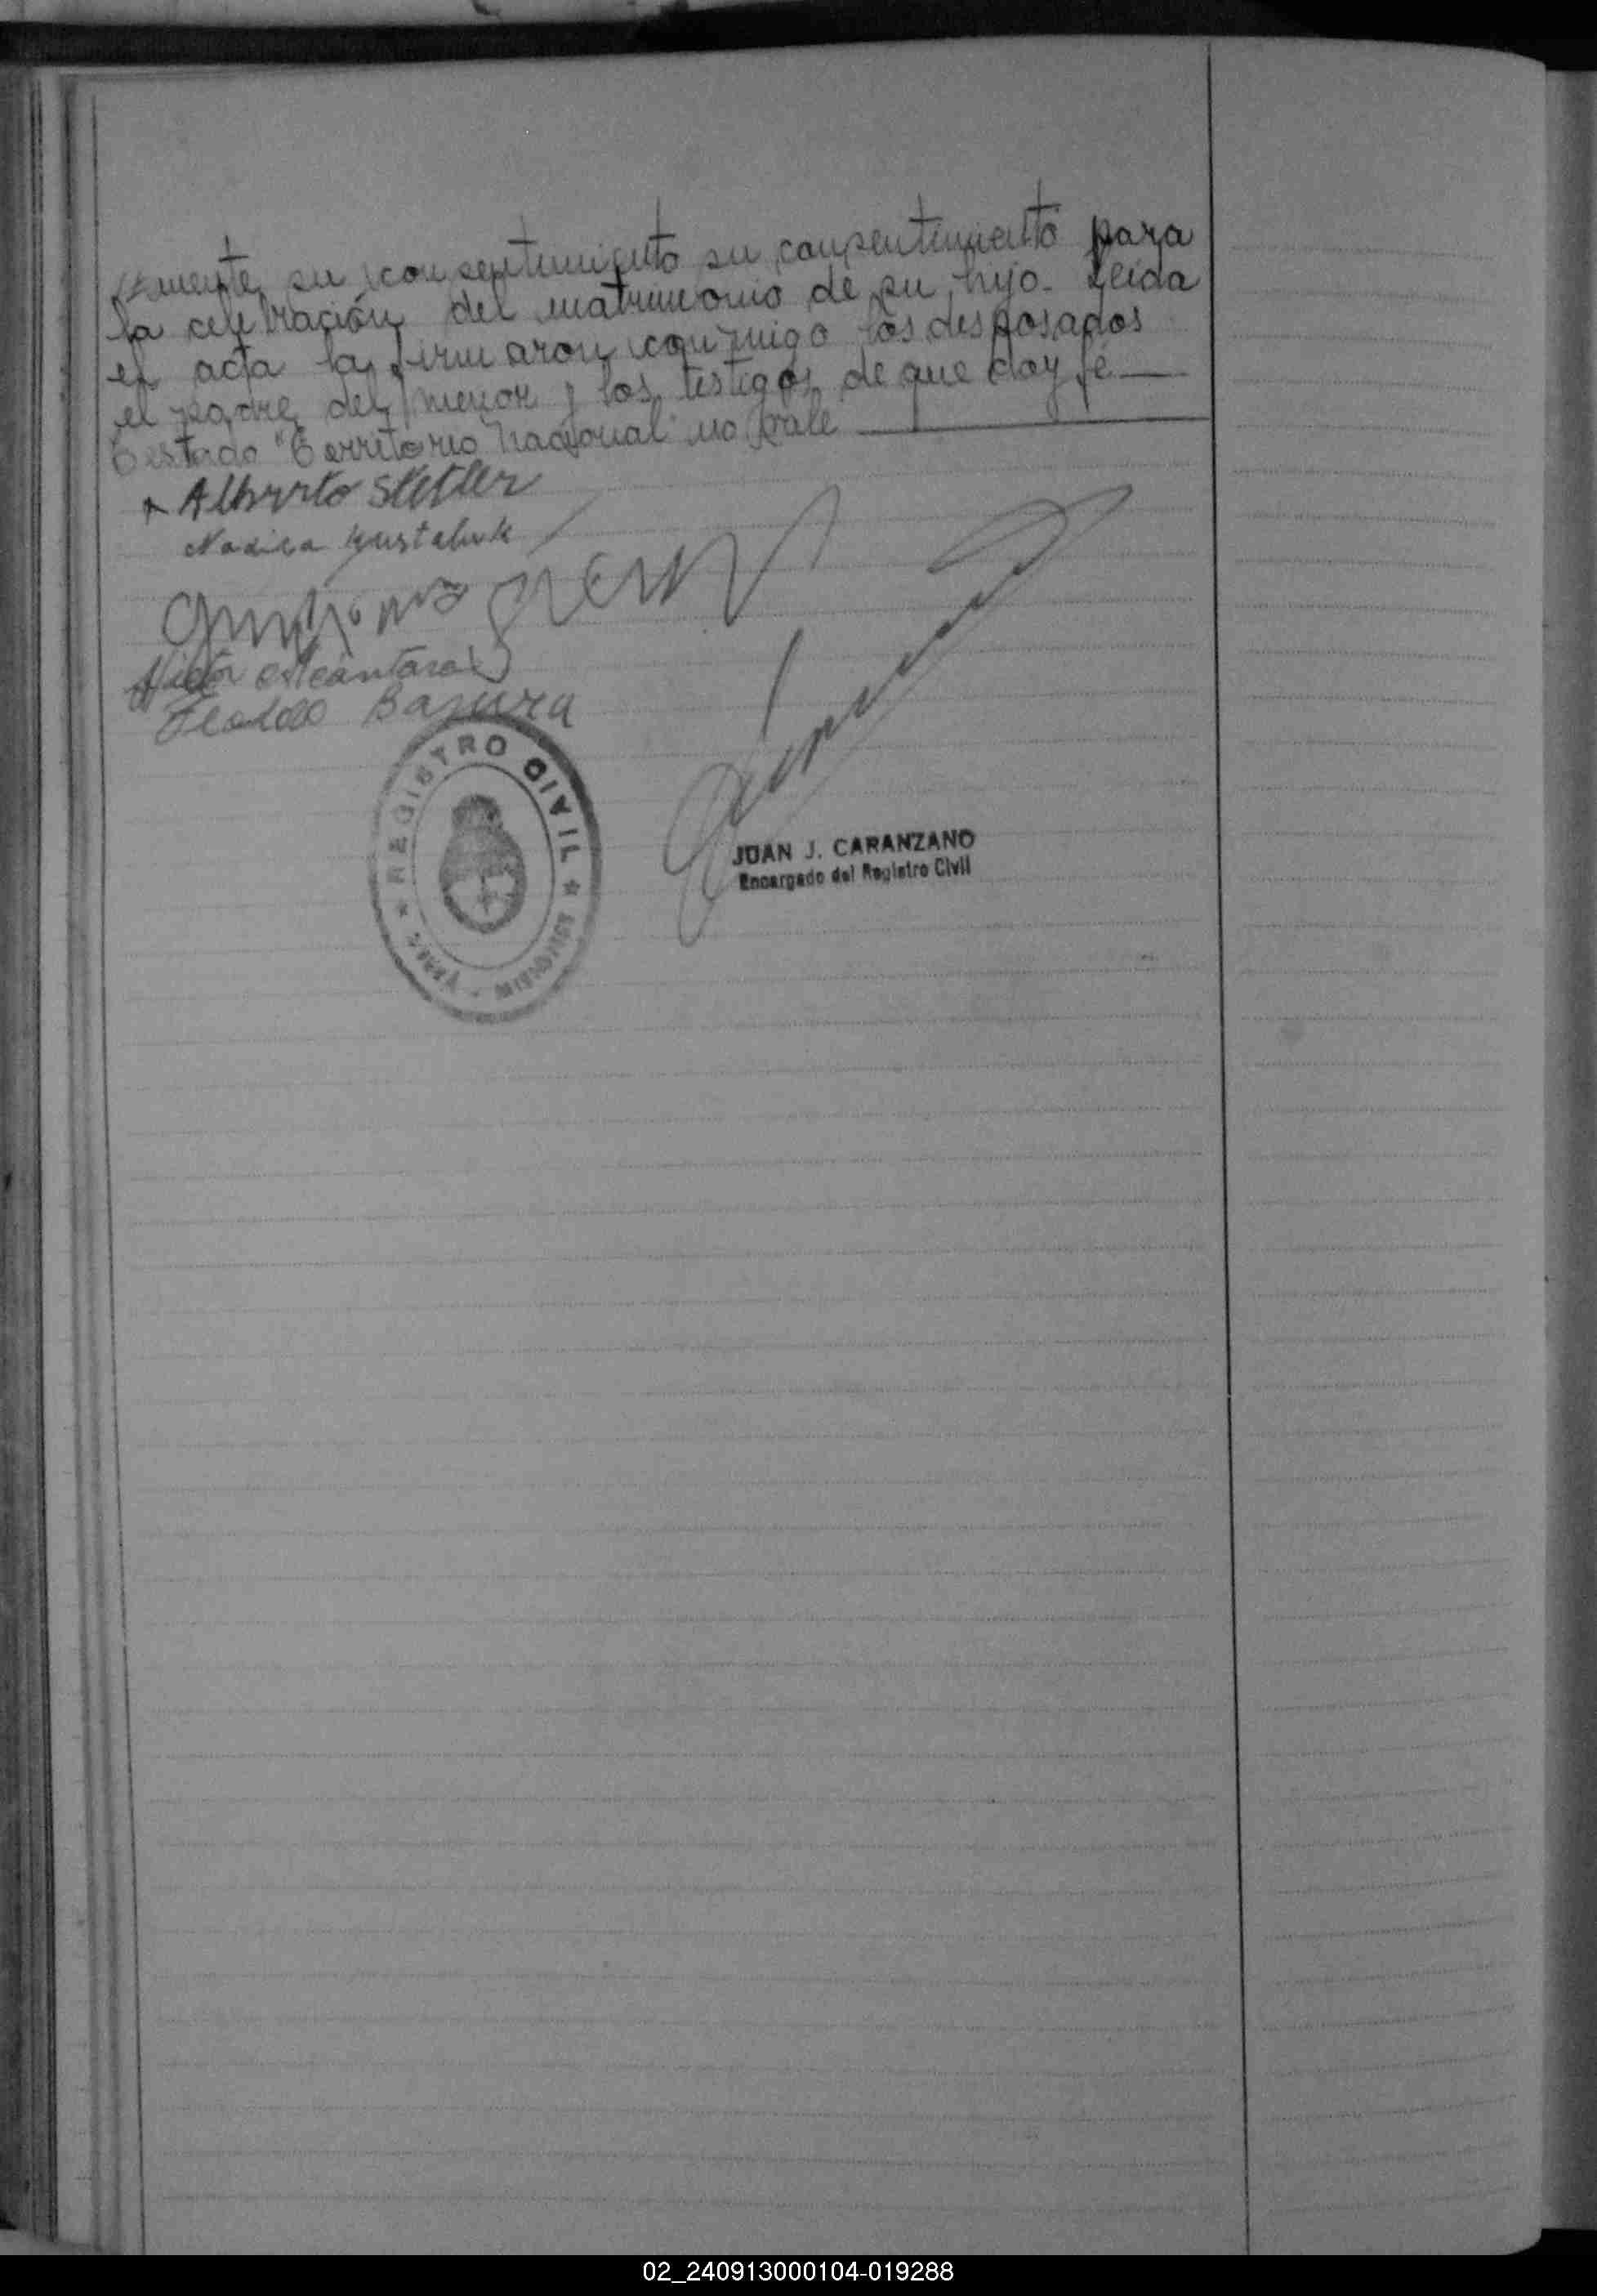 su consentimiento su consentimiento para
la celebración del matrimonio de su hijo. Leida
el acta la firmaron conmigo los desposados
el padre del menor y los testigos de que doy fé
Testado "Territorio Nacional no vale
Alberto Stetler
Alcantara
REGISTRO CIVIL
MISIONES
JUAN J. CARANZANO
Encargado del Registro Civil
02_240913000104-019288